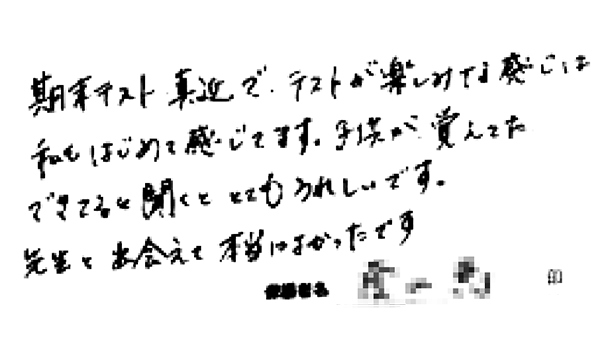 期末テスト真近で、テストが楽しみてな感じは
私もはじめて感じてます。子供が、覚えてた
できてると聞くととてもうれしいです。
先生と出会えて本当によかったです
保護者名 印